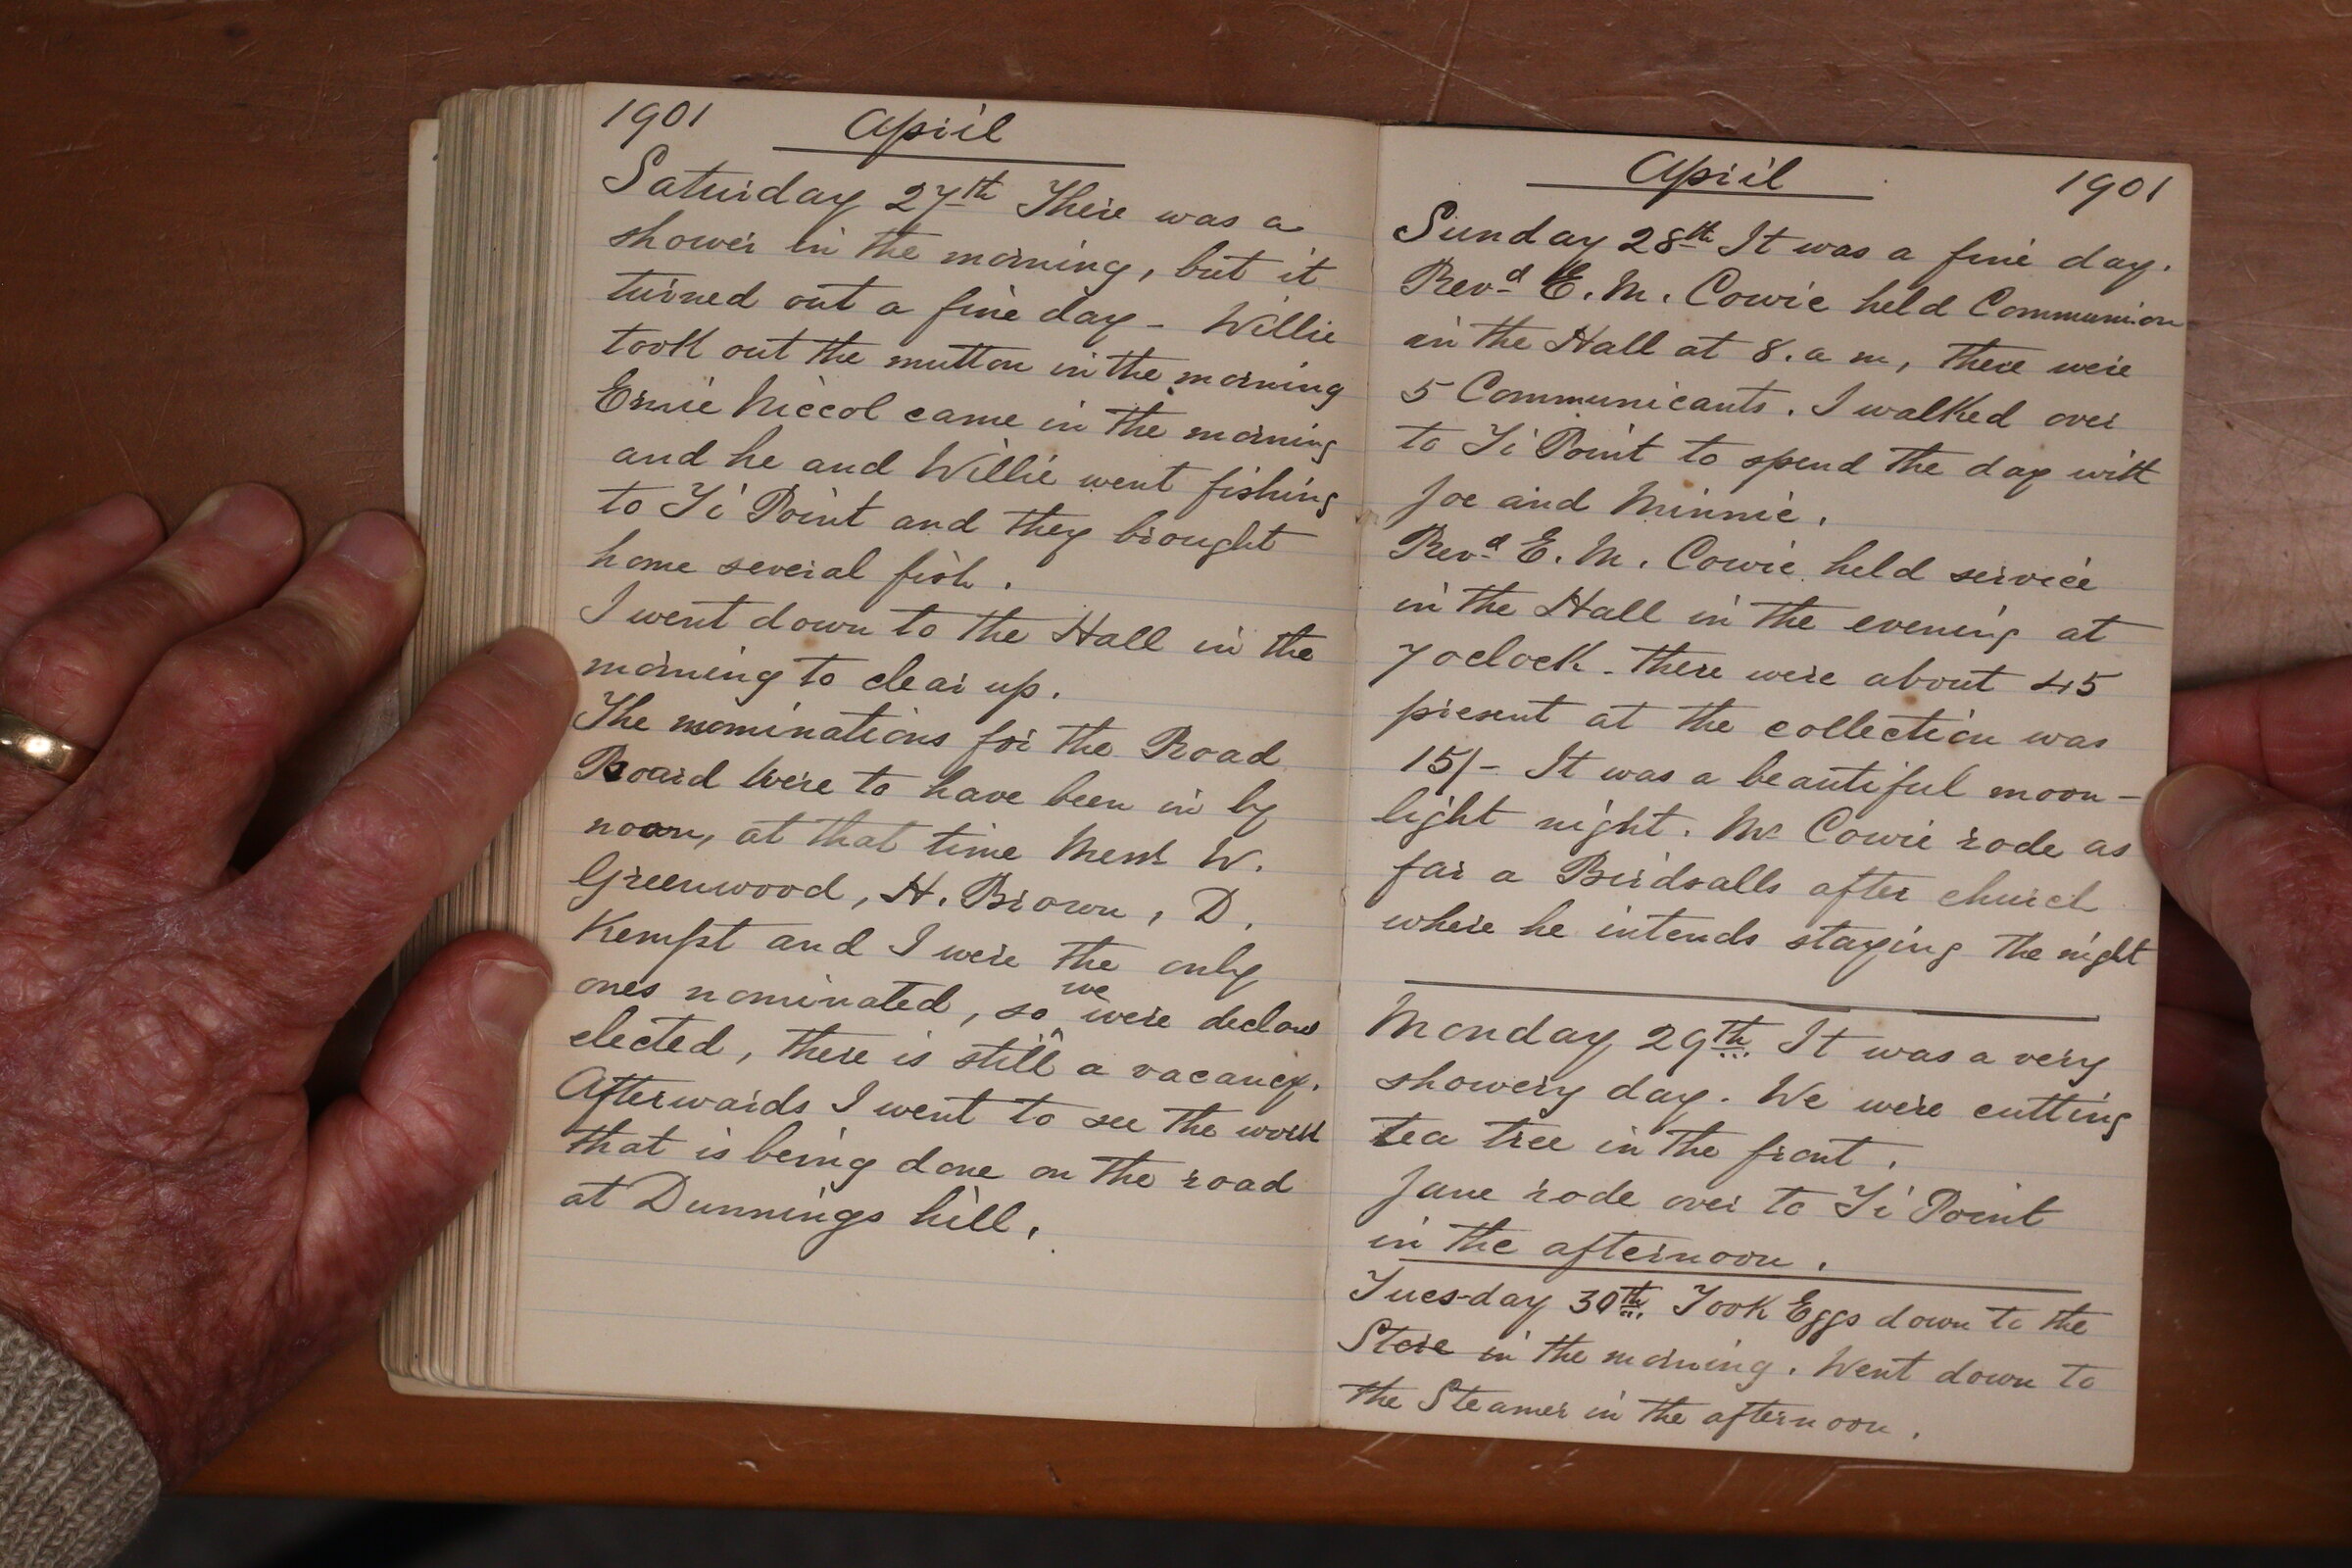 1901 April
Saturday 27th There was a
shower in the morning, but it
turned out a fine day - Willie
took out the mutton in the morning
Ernie Niccol came in the morning
and he and Willie went fishing
to Ti Point and they brought
home several fish.
I went down to the Hall in the
morning to clear up.
The nominations for the Road
Board were to have been in by
noon, at that time Messrs W.
Greenwood, H. Brown, D.
Kempt and I were the only
ones nominated, so we were
elected, there is still a vacancy.
Afterwards I went to see the work
that is being done on the road
at Dunnings hill.
April 1901
Sunday 28th It was a fine day.
Revd E. M. Cowie held Communion
in the Hall at 8. a m, there were
5 Communicants. I walked over
to Ti Point to spend the day with
Joe and Minnie.
Revd E. M. Cowie held service
in the Hall in the evening at
7 oclock - there were about 45
present at the collection was
15/- It was a beautiful moon-
light night. Mr Cowie rode as
far a Birdsalls after church
where he intends staying the night
Monday 29th It was a very
showery day. We were cutting
tea tree in the front.
Jane rode over to Ti Point
in the afternoon.
Tuesday 30th Took Eggs down to the
Store in the morning. Went down to
the Steamer in the afternoon.